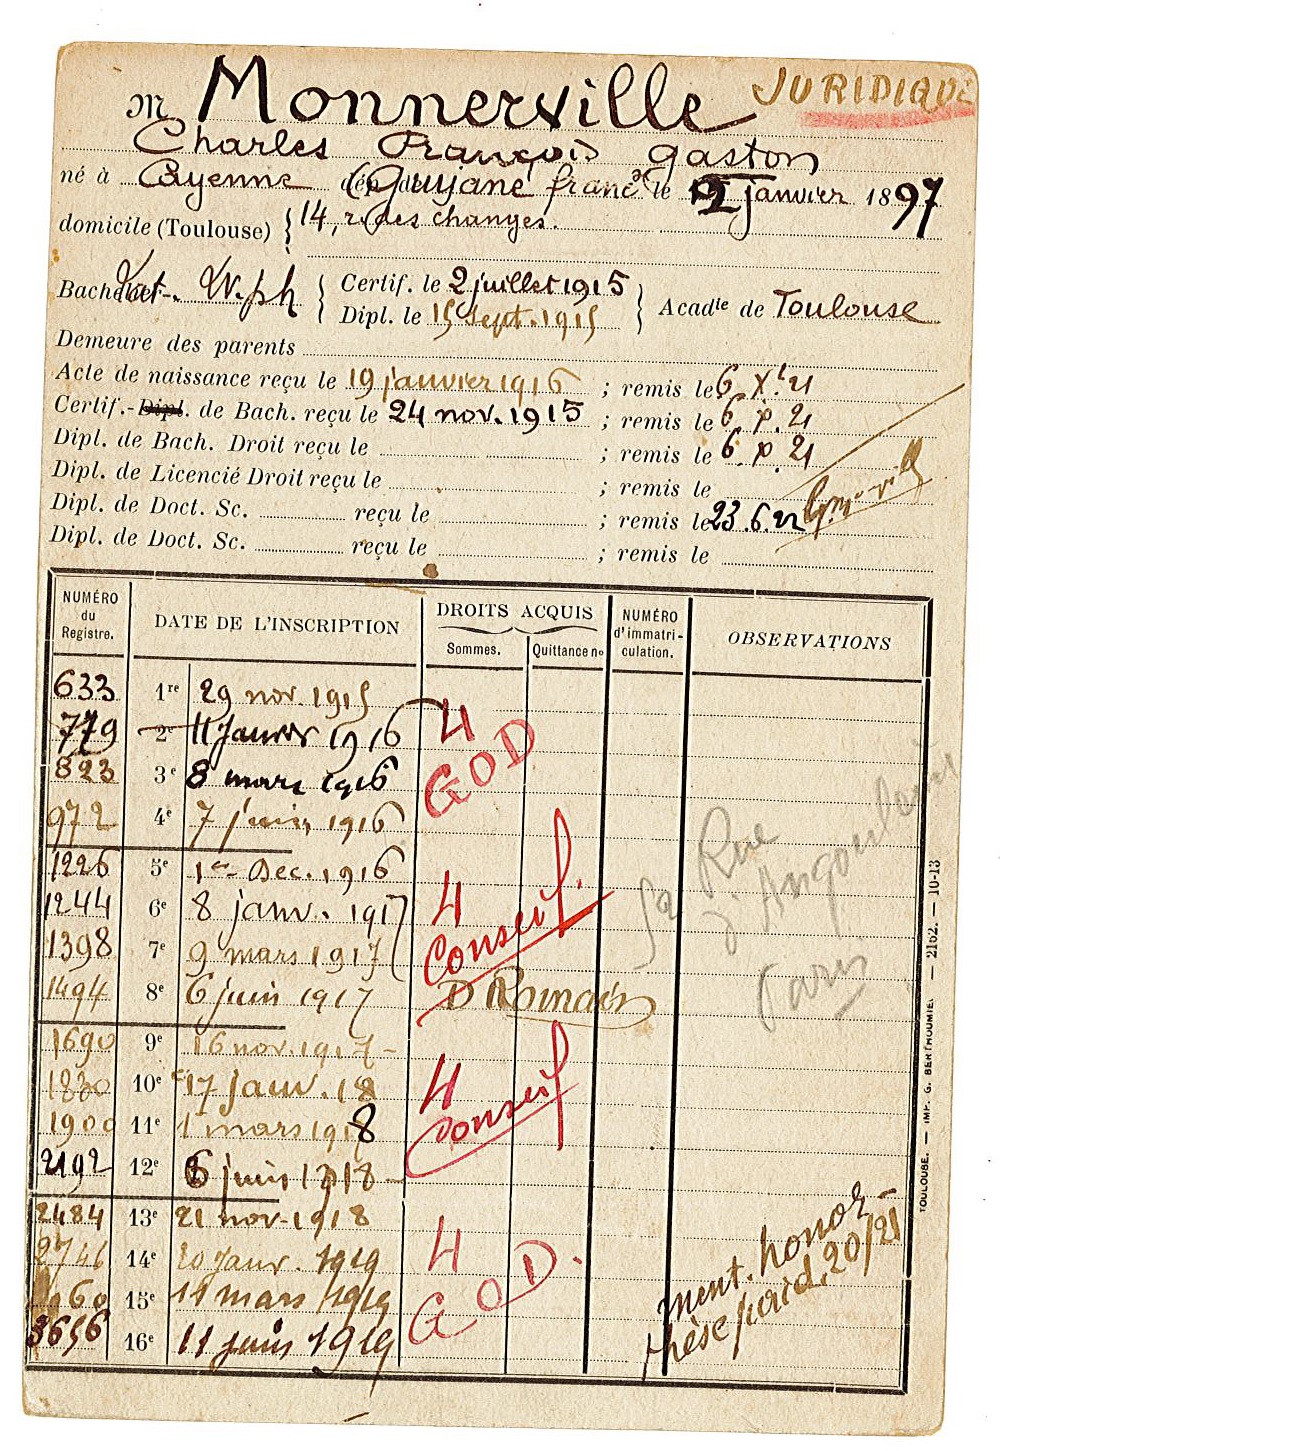 JURIDIQUE
M Monnerville
Charles François gaston
né à Cayenne (dép. de Guyane franc^e le 2 janvier 1897
domicile (Toulouse) { 14, r. des changes.
Bachelier Lat.- W. ph { Certif. le 2 juillet 1915 } Acad^ie de Toulouse
Dipl. le 15 Sept. 1915
Demeure des parents
Acte de naissance reçu le 19 janvier 1916 ; remis le 6 X^b 21
Certif.-Dipl. de Bach. reçu le 24 nov. 1915 ; remis le 6. X. 21
Dipl. de Bach. Droit reçu le ; remis le 6. X. 21
Dipl. de Licencié Droit reçu le ; remis le
Dipl. de Doct. Sc. reçu le ; remis le 23.6.22
Dipl. de Doct. Sc. reçu le ; remis le
NUMÉRO du Registre. DATE DE L'INSCRIPTION DROITS ACQUIS Sommes. Quittance n° NUMÉRO d'immatri-culation. OBSERVATIONS
633 1re 29 nov. 1915
779 2e 11 Janvier 1916 4
823 3e 8 mars 1916 GOD
972 4e 7 juin 1916
1226 5e 1er Dec. 1916
1244 6e 8 janv. 1917 4
1398 7e 9 mars 1917 Conseil.
1494 8e 6 juin 1917 D Romain
1690 9e 16 nov. 1917 -
1830 10e 17 janv. 18 4
1900 11e 1 mars 1918 Conseil
2192 12e 6 juin 1918 -
2484 13e 21 nov - 1918
2746 14e 20 Janv. 1919 4
15e 11 mars 1919 GOD.
3656 16e 11 juin 1919
Rue
d'Angoulême
Paris
ment. honor.
thèse 20/21
TOULOUSE. — IMP. G. BERTHOUMIEU — 2152. — 10-13